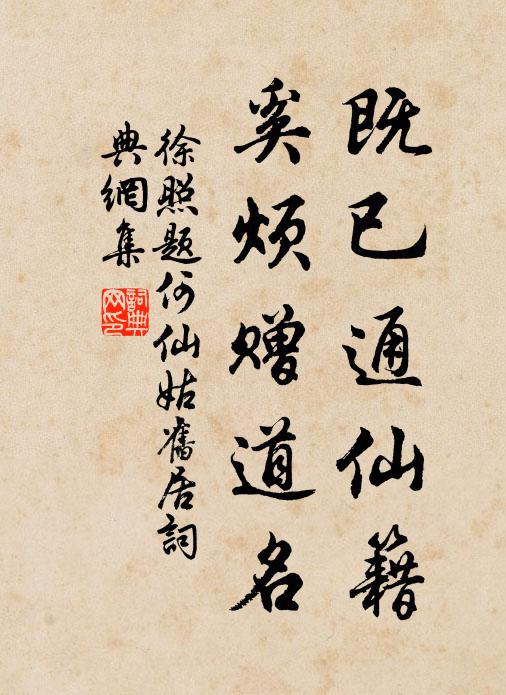 既已通仙籍
奚烦赠道名
徐照题何仙姑旧居詞
典網集
詞典
网印